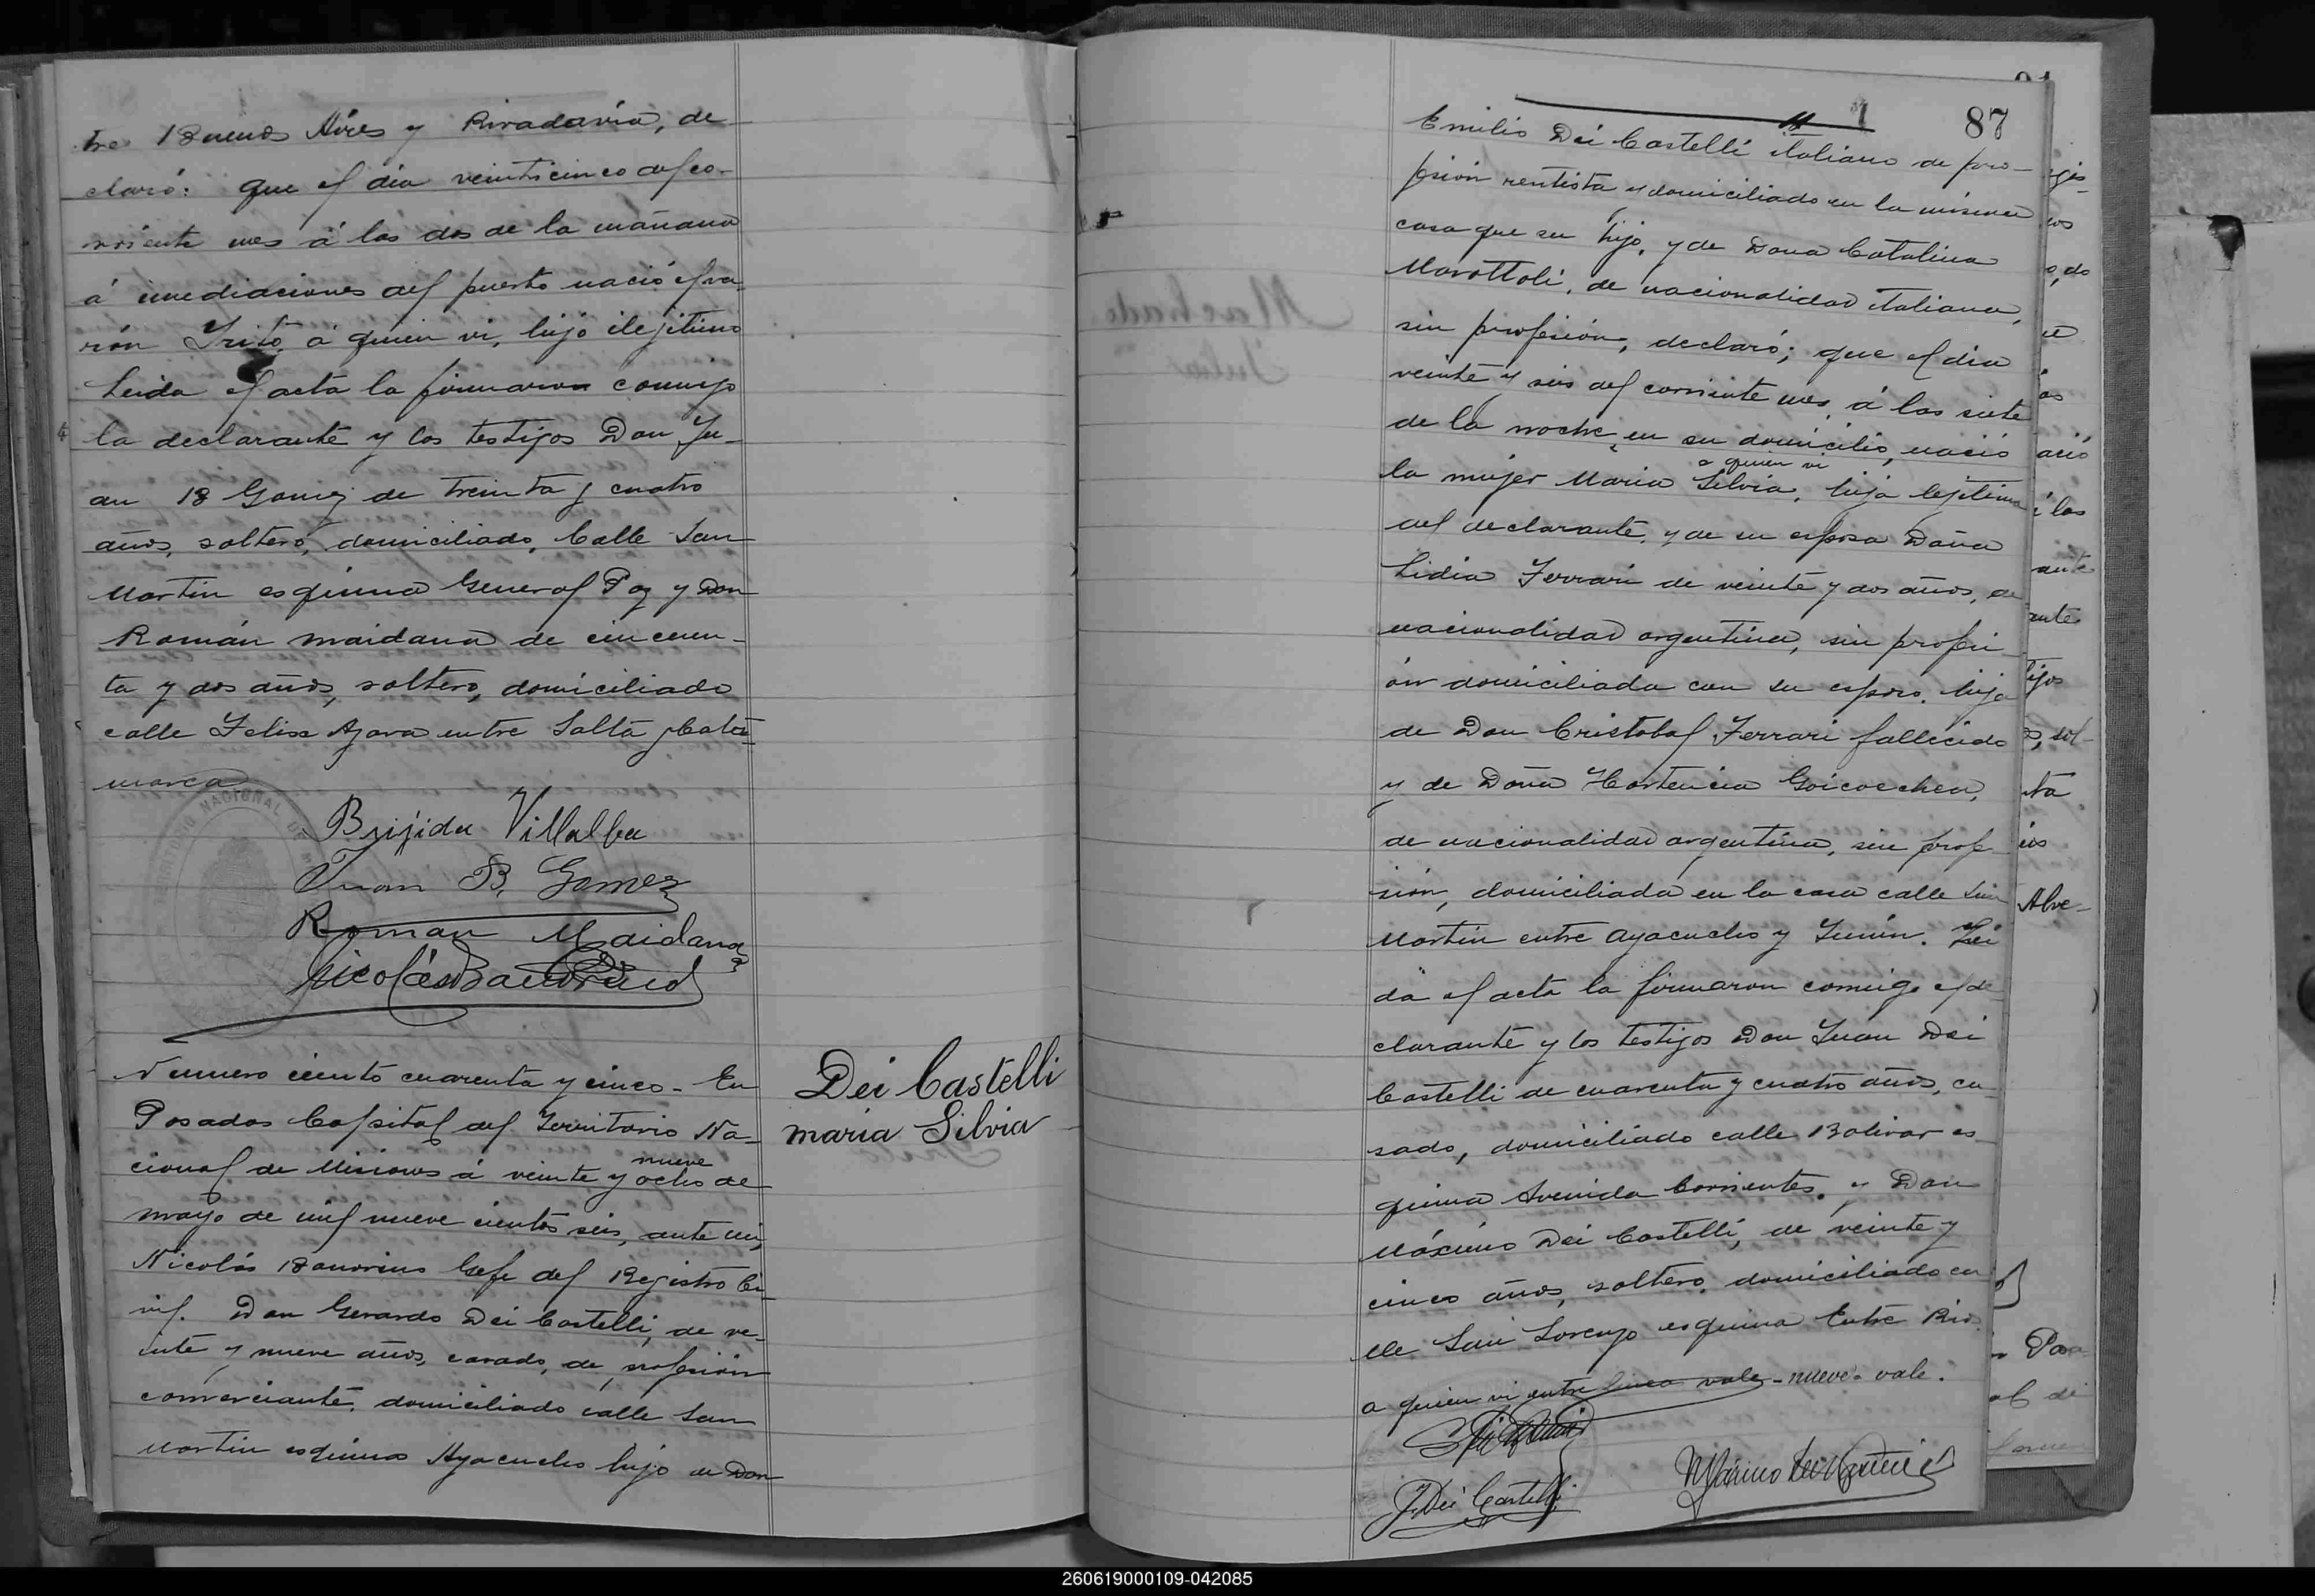 tre Buenos Aires y Rivadavia, de-
claró: que el dia veinticinco del co-
rriente mes á las dos de la mañana
á inmediaciones del puerto nació el va-
rón Irito, á quien vi, hijo ilejitimo
Leida el acta la firmaron conmigo
la declarante y los testijos Don Ju-
an B Gomez de treinta y cuatro
años, soltero, domiciliado, Calle San
Martin esquina General Paz y Don
Román Maidana de cincuen-
ta y dos años, soltero, domiciliado
calle Felix Azara entre Salta y Cata-
marca
TERRITORIO NACIONAL DE
Brijida Villalba
Juan B. Gomez
Roman Maidana
Nicolás Bonorino
Numero ciento cuarenta y cinco - En
Posadas Capital del Territorio Na-
cional de Misiones á veinte y ocho de
nueve
mayo de mil nueve cientos seis, ante mi,
Nicolás Bonorino Gefe del Registro Ci-
vil. Don Gerardo Dei Castelli, de ve-
inte y nueve años, casado, de profesión
comerciante, domiciliado calle San
Martin esquina Ayacucho hijo de Don
Dei Castelli
maria Silvia
87
Emilio Dei Castelli italiano de pro-
fesión rentista y domiciliado en la misma
casa que su hijo, y de Doña Catalina
Marottoli, de nacionalidad italiana,
sin profesión, declaró; que el dia
veinte y seis del corriente mes, á las siete
de la noche, en su domicilio, nació
a quien vi
la mujer Maria Silvia, hija lejitima
del declarante, y de su esposa Doña
Lidia Ferrari de veinte y dos años, de
nacionalidad argentina, sin profesi-
ón domiciliada con su esposo, hija
de Don Cristobal Ferrari fallecido
y de Doña Hortencia Goicoechea,
de nacionalidad argentina, sin profe-
sión, domiciliada en la casa calle San
Martin entre Ayacucho y Junín. Lei
da el acta la firmaron conmigo el de
clarante y los testijos Don Juan Dei
Castelli de cuarenta y cuatro años, ca-
sado, domiciliado calle Bolivar es
quina Avenida Corrientes, y Don
Máximo Dei Castelli, de veinte y
cinco años, soltero, domiciliado ca
lle San Lorenzo esquina Entre Rios.
a quien vi entre linea vale - nueve - vale.
J. Dei Castelli
Máximo Dei Castelli
260619000109-042085